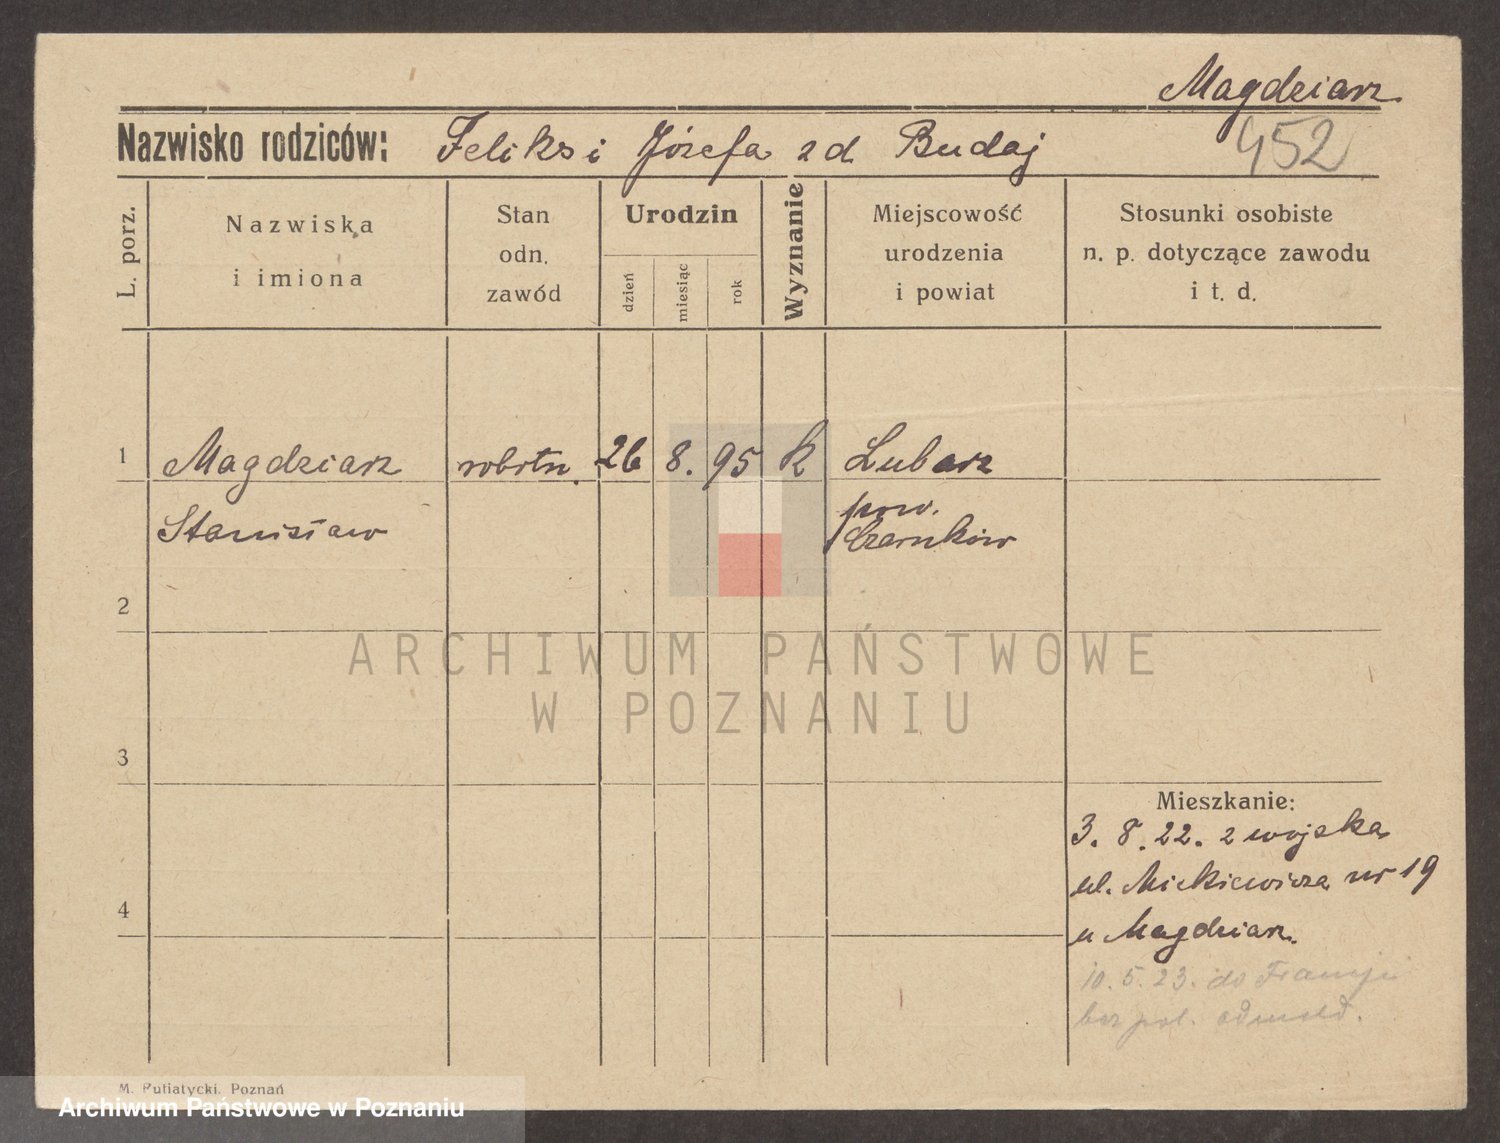 Magdziarz
452
Nazwisko rodziców: Feliks i Józefa zd Budaj
L. porz.
Nazwiska
i imiona
Stan
odn.
zawód
Urodzin
dzień
miesiąc
rok
Wyznanie
Miejscowość
urodzenia
i powiat
Stosunki osobiste
n. p. dotyczące zawodu
i t. d.
1 Magdziarz robotn. 26 8. 95 k Lubarz
Stanisław pow.
Czarnków
2
ARCHIWUM PAŃSTWOWE
W POZNANIU
3
Mieszkanie:
3. 8. 22. z wojska
ul. Mickiewicza nr 19
4
u Magdziarz.
10. 5. 23. do Francji
bez pol. odmeld.
M. Putiatycki, Poznań
Archiwum Państwowe w Poznaniu